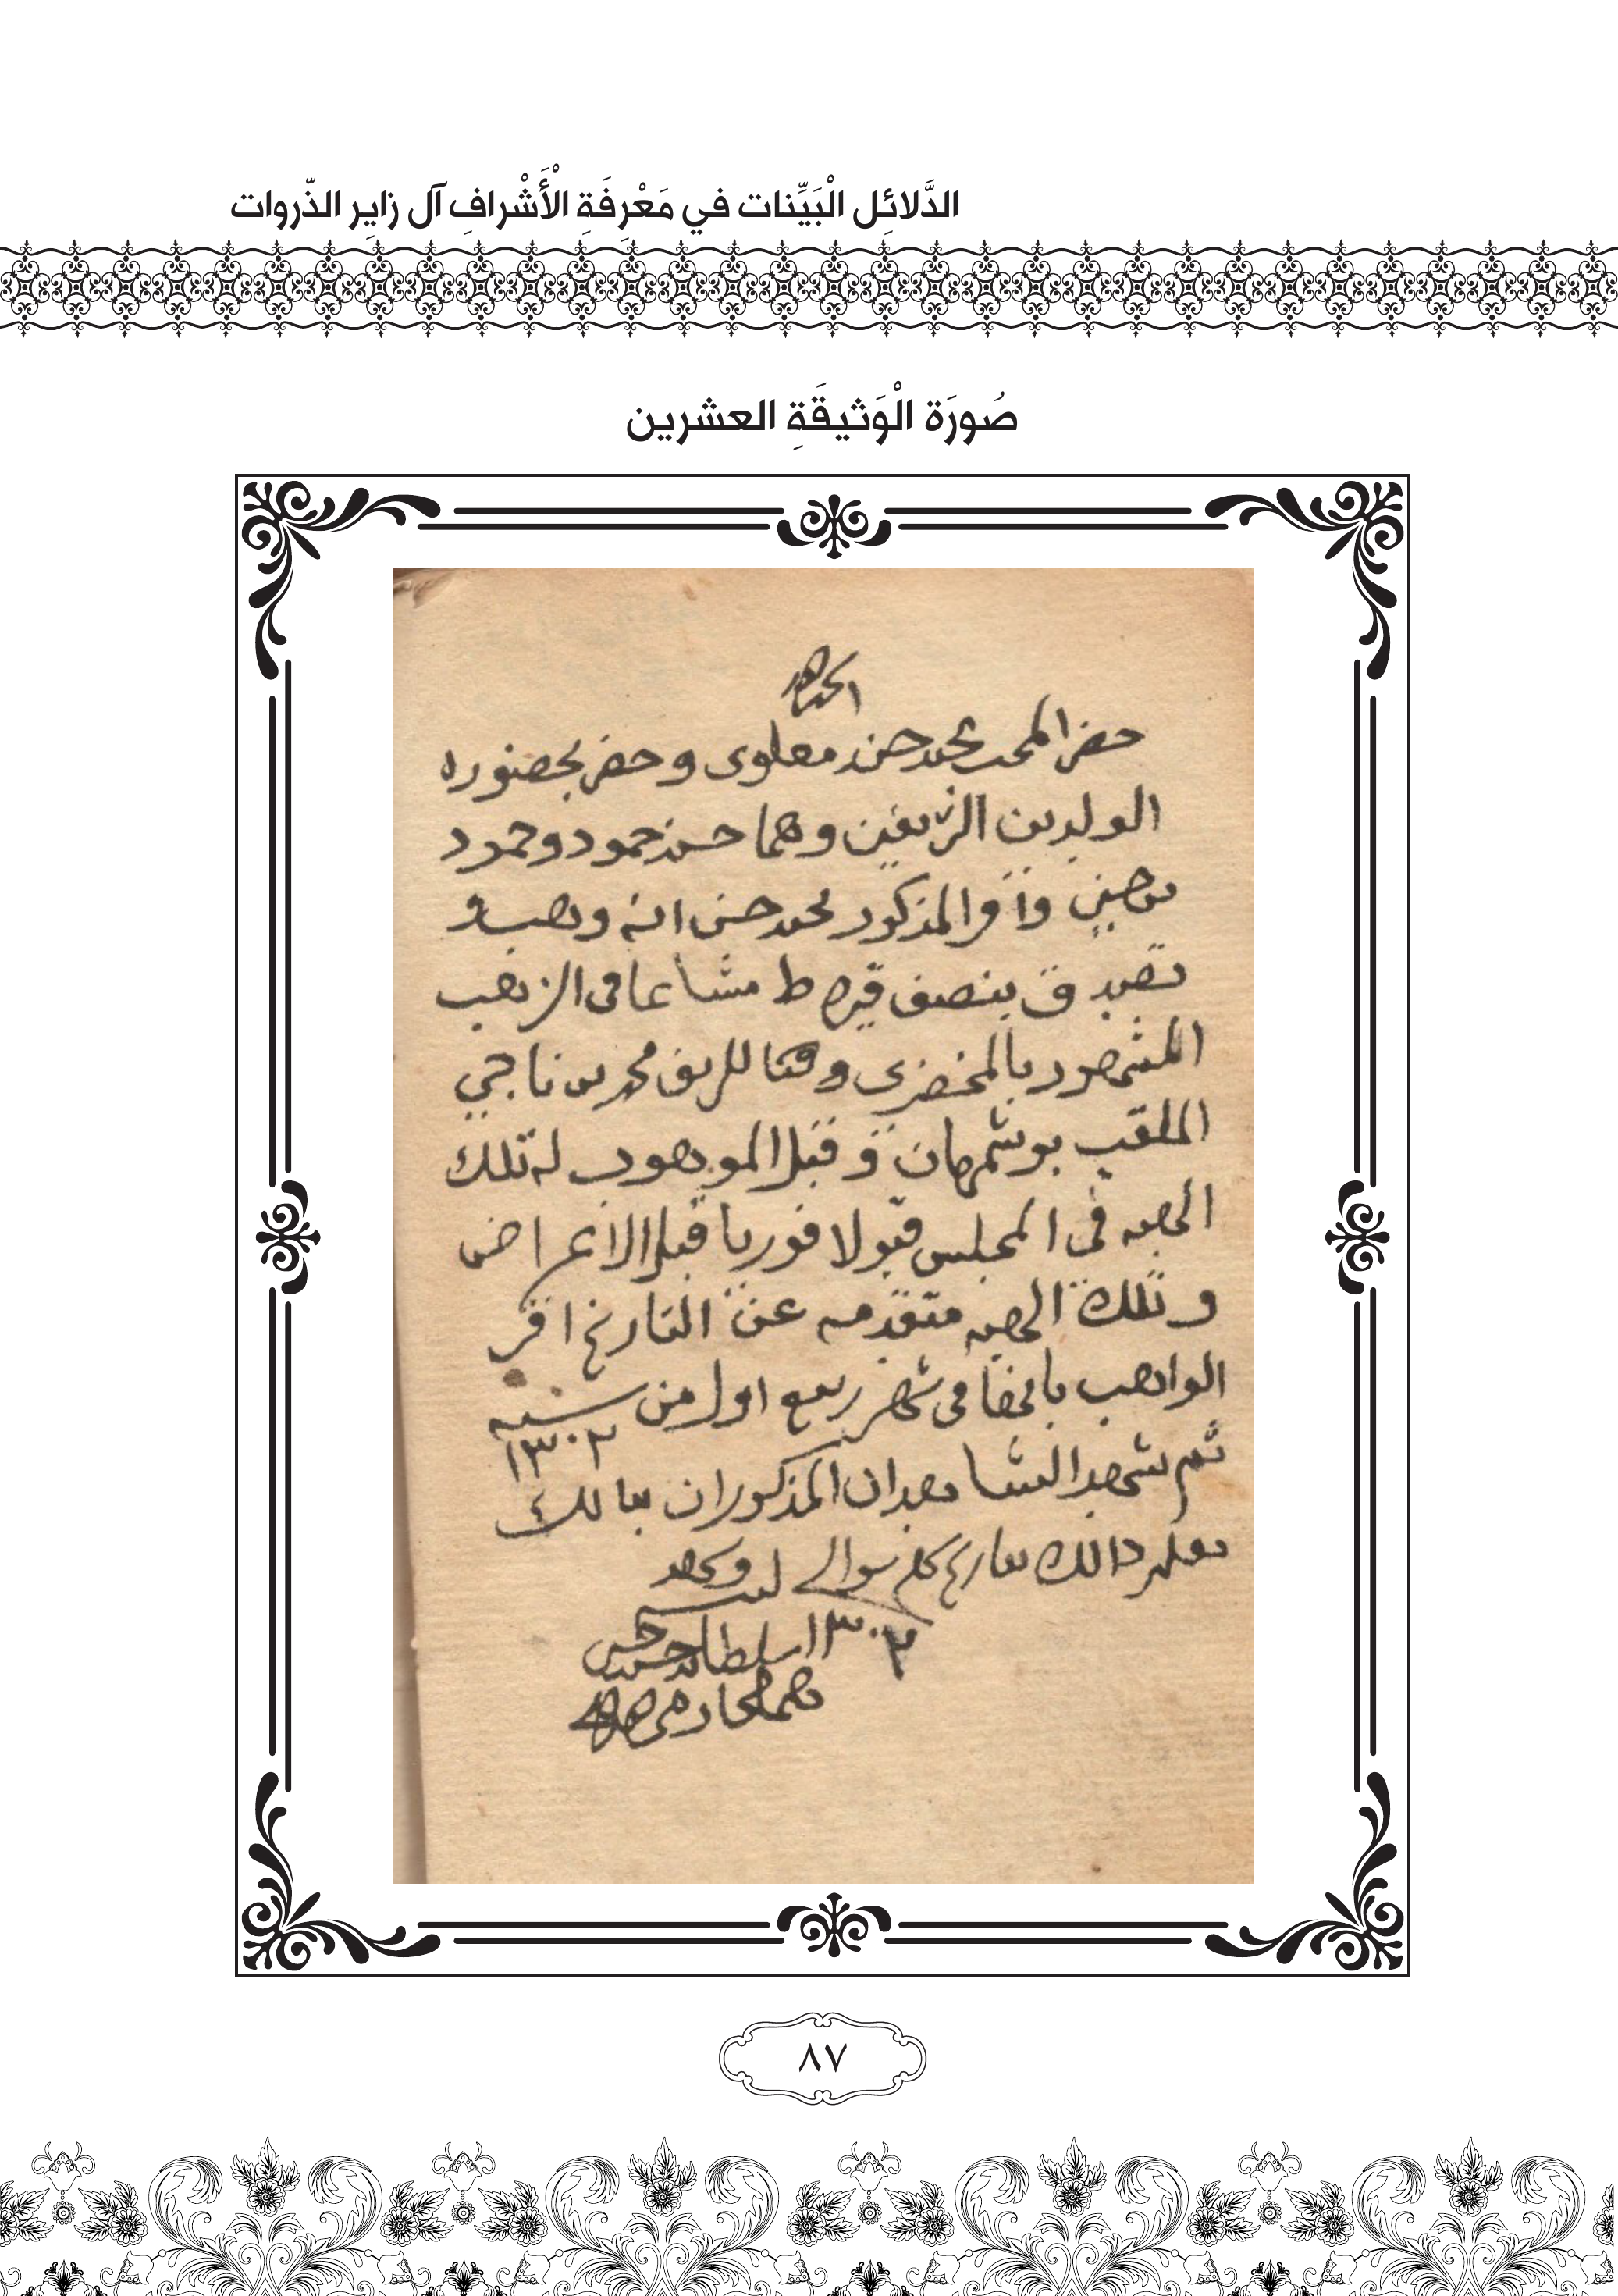 الدَّلائِل الْبَيِّنات في مَعْرِفَةِ الْأَشْرافِ آل زايِر الذّروات
صُورَة الْوَثيقَةِ العشرين
الحمد لله
حضر المحب محمد حسن معلوى وحضر بحضوره
الولدين الشريفين وهما حسن حمود وحمود
واقر المذكور محمد حسن انه وهب و
تصدق بنصف قيراط مشاعا فى الزهب
المشهور بالمخضرى وقفا للشريف محمد بن ناجي
الملقب بوشمهان وقبل الموهوب له تلك
الحصه فى المجلس قبولا فوريا قبل الاعراض
وتلك الحصه متقدمه عن التاريخ اقر
الواهب بالحفا فى شهر ربيع اول من سنه
١٣٠٢
ثم شهد الشاهدان المذكوران بذالك
ذالك بتاريخ شوال
١٣٠٢
٨٧